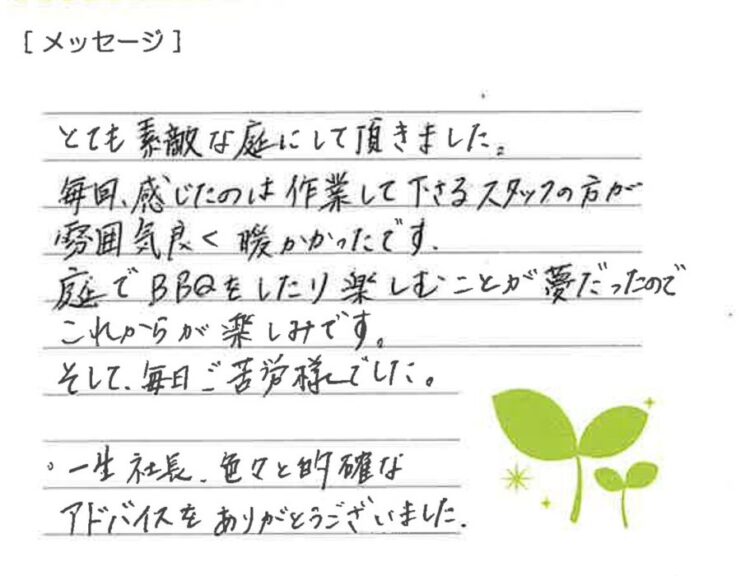 [メッセージ]
とても素敵な庭にして頂きました。
毎回、感じたのは作業して下さるスタッフの方が
雰囲気良く暖かかったです.
庭でBBQをしたり楽しむことが夢だったので
これからが楽しみです。
そして、毎日ご苦労様でした。
。一生社長、色々と的確な
アドバイスをありがとうございました.